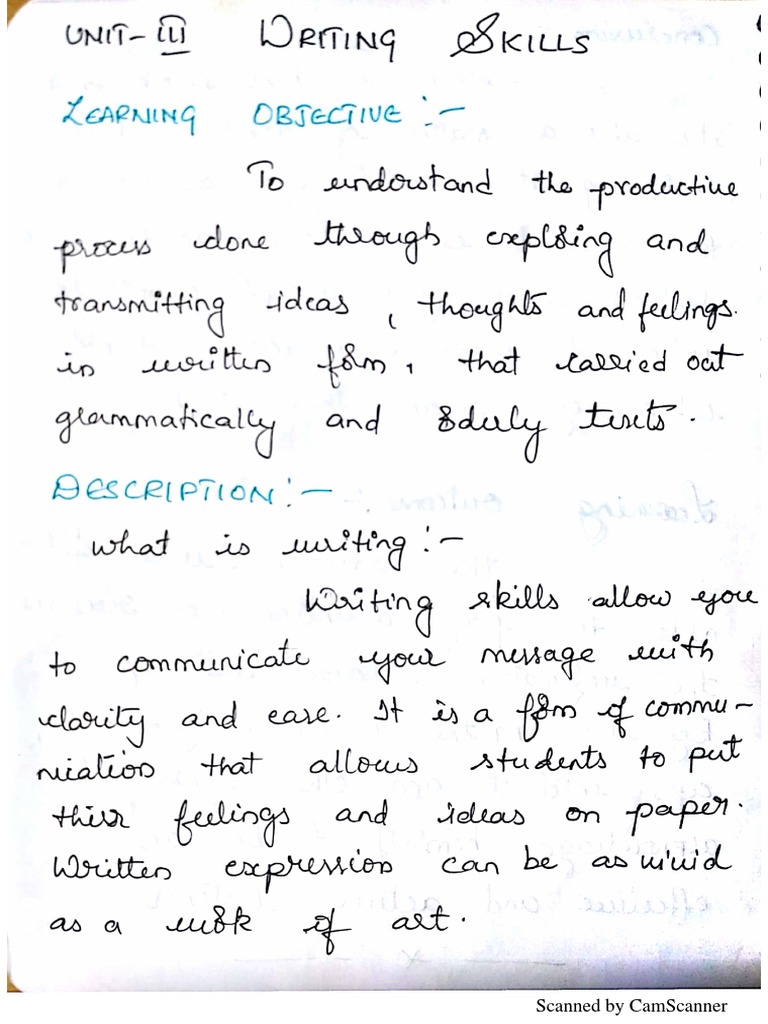 UNIT-III WRITING SKILLS
LEARNING OBJECTIVE :-
To understand the productive
process done through exploring and
transmitting ideas , thoughts and feelings.
in written form, that carried out
grammatically and orderly texts.
DESCRIPTION :-
what is writing :-
Writing skills allow you
to communicate your message with
clarity and ease. It is a form of commu-
nication that allows students to put
their feelings and ideas on paper.
Written expression can be as vivid
as a work of art.
Scanned by CamScanner